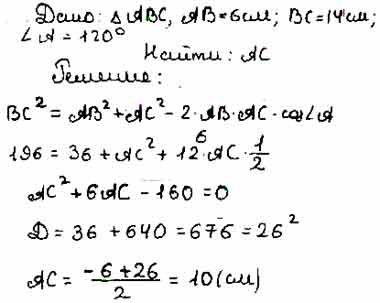 Дано: △ ABC, AB=6см; BC=14см;
∠A=120°
Найти: AC
Решение:
BC² = AB² + AC² - 2·AB·AC·cos∠A
196 = 36 + AC² + 12·AC·1/2 6
AC² + 6AC - 160 = 0
D = 36 + 640 = 676 = 26²
AC = (-6+26)/2 = 10 (см)